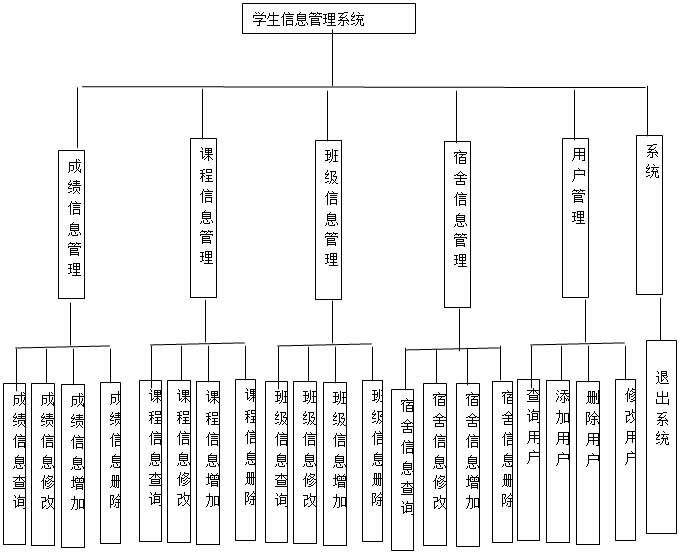 学生信息管理系统
成绩信息管理
课程信息管理
班级信息管理
宿舍信息管理
用户管理
系统
成绩信息查询
成绩信息修改
成绩信息增加
成绩信息删除
课程信息查询
课程信息修改
课程信息增加
课程信息删除
班级信息查询
班级信息修改
班级信息增加
班级信息删除
宿舍信息查询
宿舍信息修改
宿舍信息增加
宿舍信息删除
查询用户
添加用户
删除用户
修改用户
退出系统